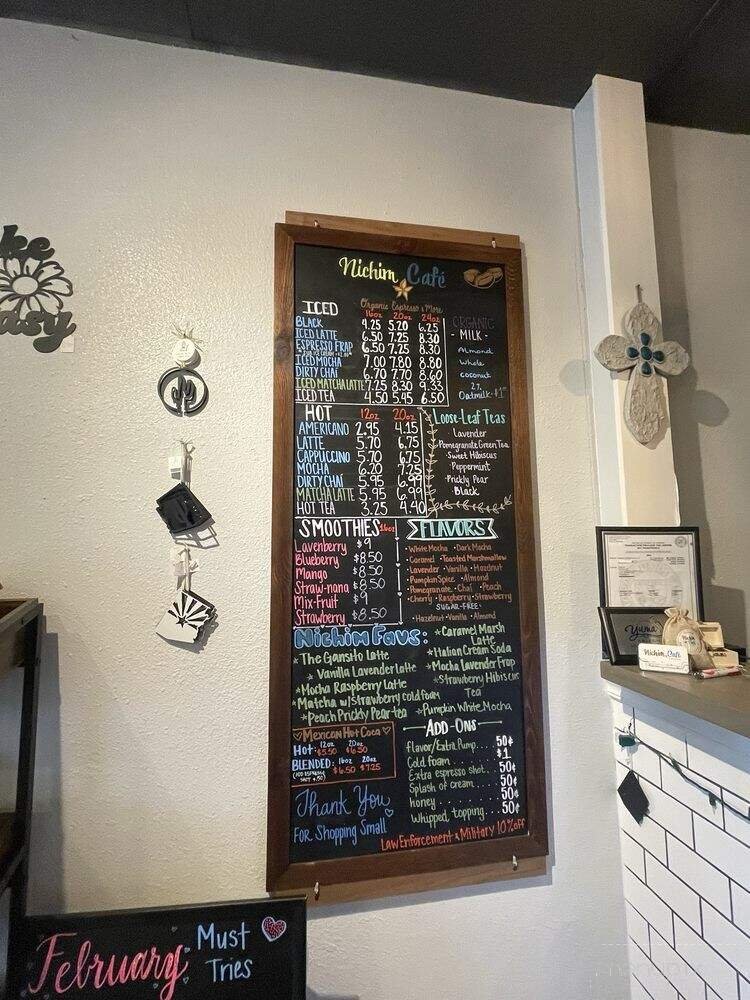 ke
easy
Nichim Café
Organic Espresso & More
ICED 16oz 20oz 24oz
BLACK 4.25 5.20 6.25
ICED LATTE 6.50 7.25 8.30
ESPRESSO FRAP 6.50 7.25 8.30
ICED MOCHA 7.00 7.80 8.80
DIRTY CHAI 6.70 7.70 8.60
ICED MATCHA LATTE 7.25 8.30 9.33
ICED TEA 4.50 5.45 6.50
ORGANIC
- MILK -
Almond
Whole
coconut
2%
Oatmilk
HOT 12oz 20oz
AMERICANO 2.95 4.15
LATTE 5.70 6.75
CAPPUCCINO 5.70 6.75
MOCHA 6.20 7.25
DIRTY CHAI 5.95 6.99
MATCHA LATTE 5.95 6.99
HOT TEA 3.25 4.40
Loose-Leaf Teas
Lavender
Pomegranate Green Tea
Sweet Hibiscus
Peppermint
Prickly Pear
Black
SMOOTHIES 16oz
Lavenberry $9
Blueberry $8.50
Mango $8.50
Straw-nana $8.50
Mix-Fruit $9
Strawberry $8.50
FLAVORS
White Mocha • Dark Mocha
Caramel • Toasted Marshmallow
Lavender • Vanilla • Hazelnut
Pumpkin Spice • Almond
Pomegranate • Chai • Peach
Cherry • Raspberry • Strawberry
SUGAR-FREE:
Hazelnut • Vanilla • Almond
Nichim Favs:
* The Gansito Latte
* Vanilla Lavender Latte
* Mocha Raspberry Latte
* Matcha w/strawberry cold foam
* Peach Prickly Pear tea
* Caramel Marsh Latte
* Italian Cream Soda
* Mocha Lavender Frap
* Strawberry Hibiscus Tea
* Pumpkin White Mocha
Mexican Hot Coca
12oz 20oz
Hot: $5.50 $6.50
16oz 20oz
BLENDED: $6.50 $7.25
ADD-ONS
Flavor/Extra Pump.... 50¢
Cold foam $1
Extra espresso shot.. 50¢
Splash of cream.... 50¢
honey........ 50¢
Whipped topping... 50¢
Thank You
For Shopping Small
Law Enforcement & Military 10% off
February
Must
Tries
Yuma
Nichim Café